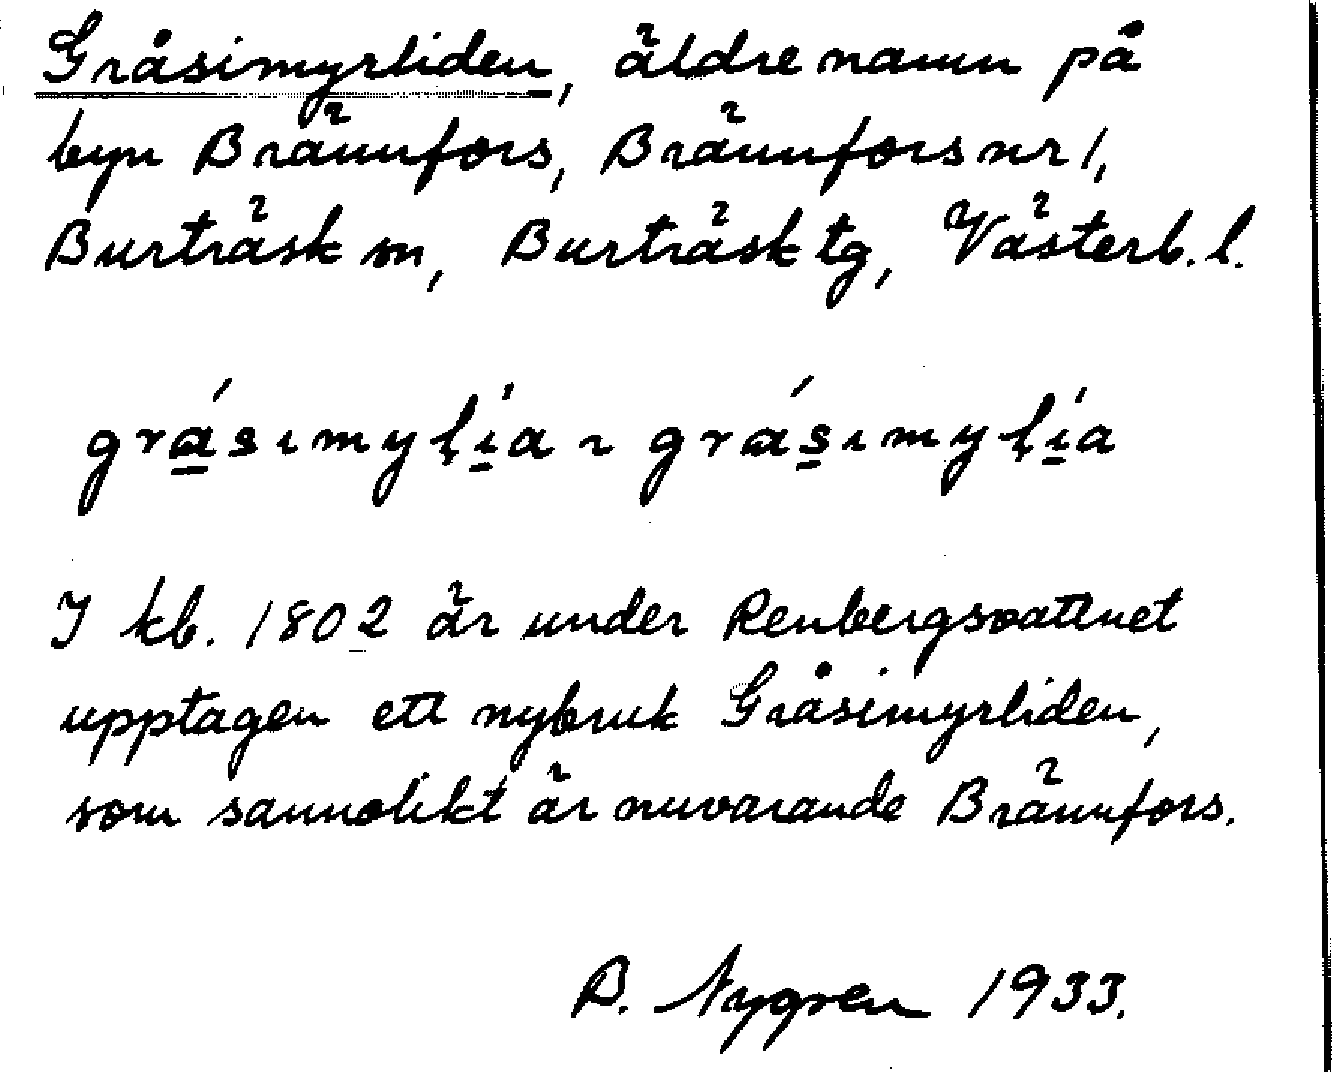 Gråsimyrliden, äldre namn på
byn Brännfors, Brännfors nr 1,
Burträsk sn, Burträsk tg, Västerb. l.
grásımylía ~ grásımylía
I kb. 1802 är under Renbergsvattnet
upptagen ett nybruk Gråsimyrliden,
som sannolikt är nuvarande Brännfors.
B. Nygren 1933.